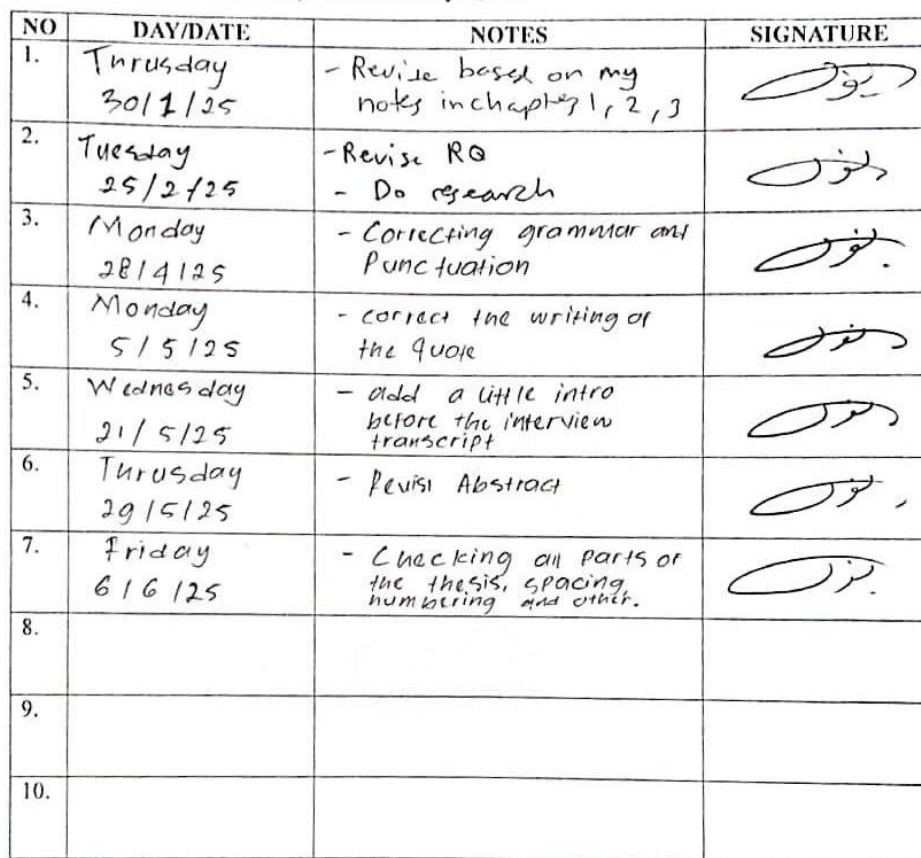 NO DAY/DATE NOTES SIGNATURE
1. Thrusday - Revise based on my
30/1/25 notes in chapter 1, 2, 3
2. Tuesday - Revise RQ
25/2/25 - Do research
3. Monday - Correcting grammar and
28/4/25 Punctuation
4. Monday - correct the writing of
5/5/25 the quote
5. Wednesday - add a little intro
21/5/25 before the interview
transcript
6. Thrusday - Revisi Abstract
29/5/25
7. Friday - Checking all parts of
6/6/25 the thesis, spacing,
numbering and other.
8.
9.
10.